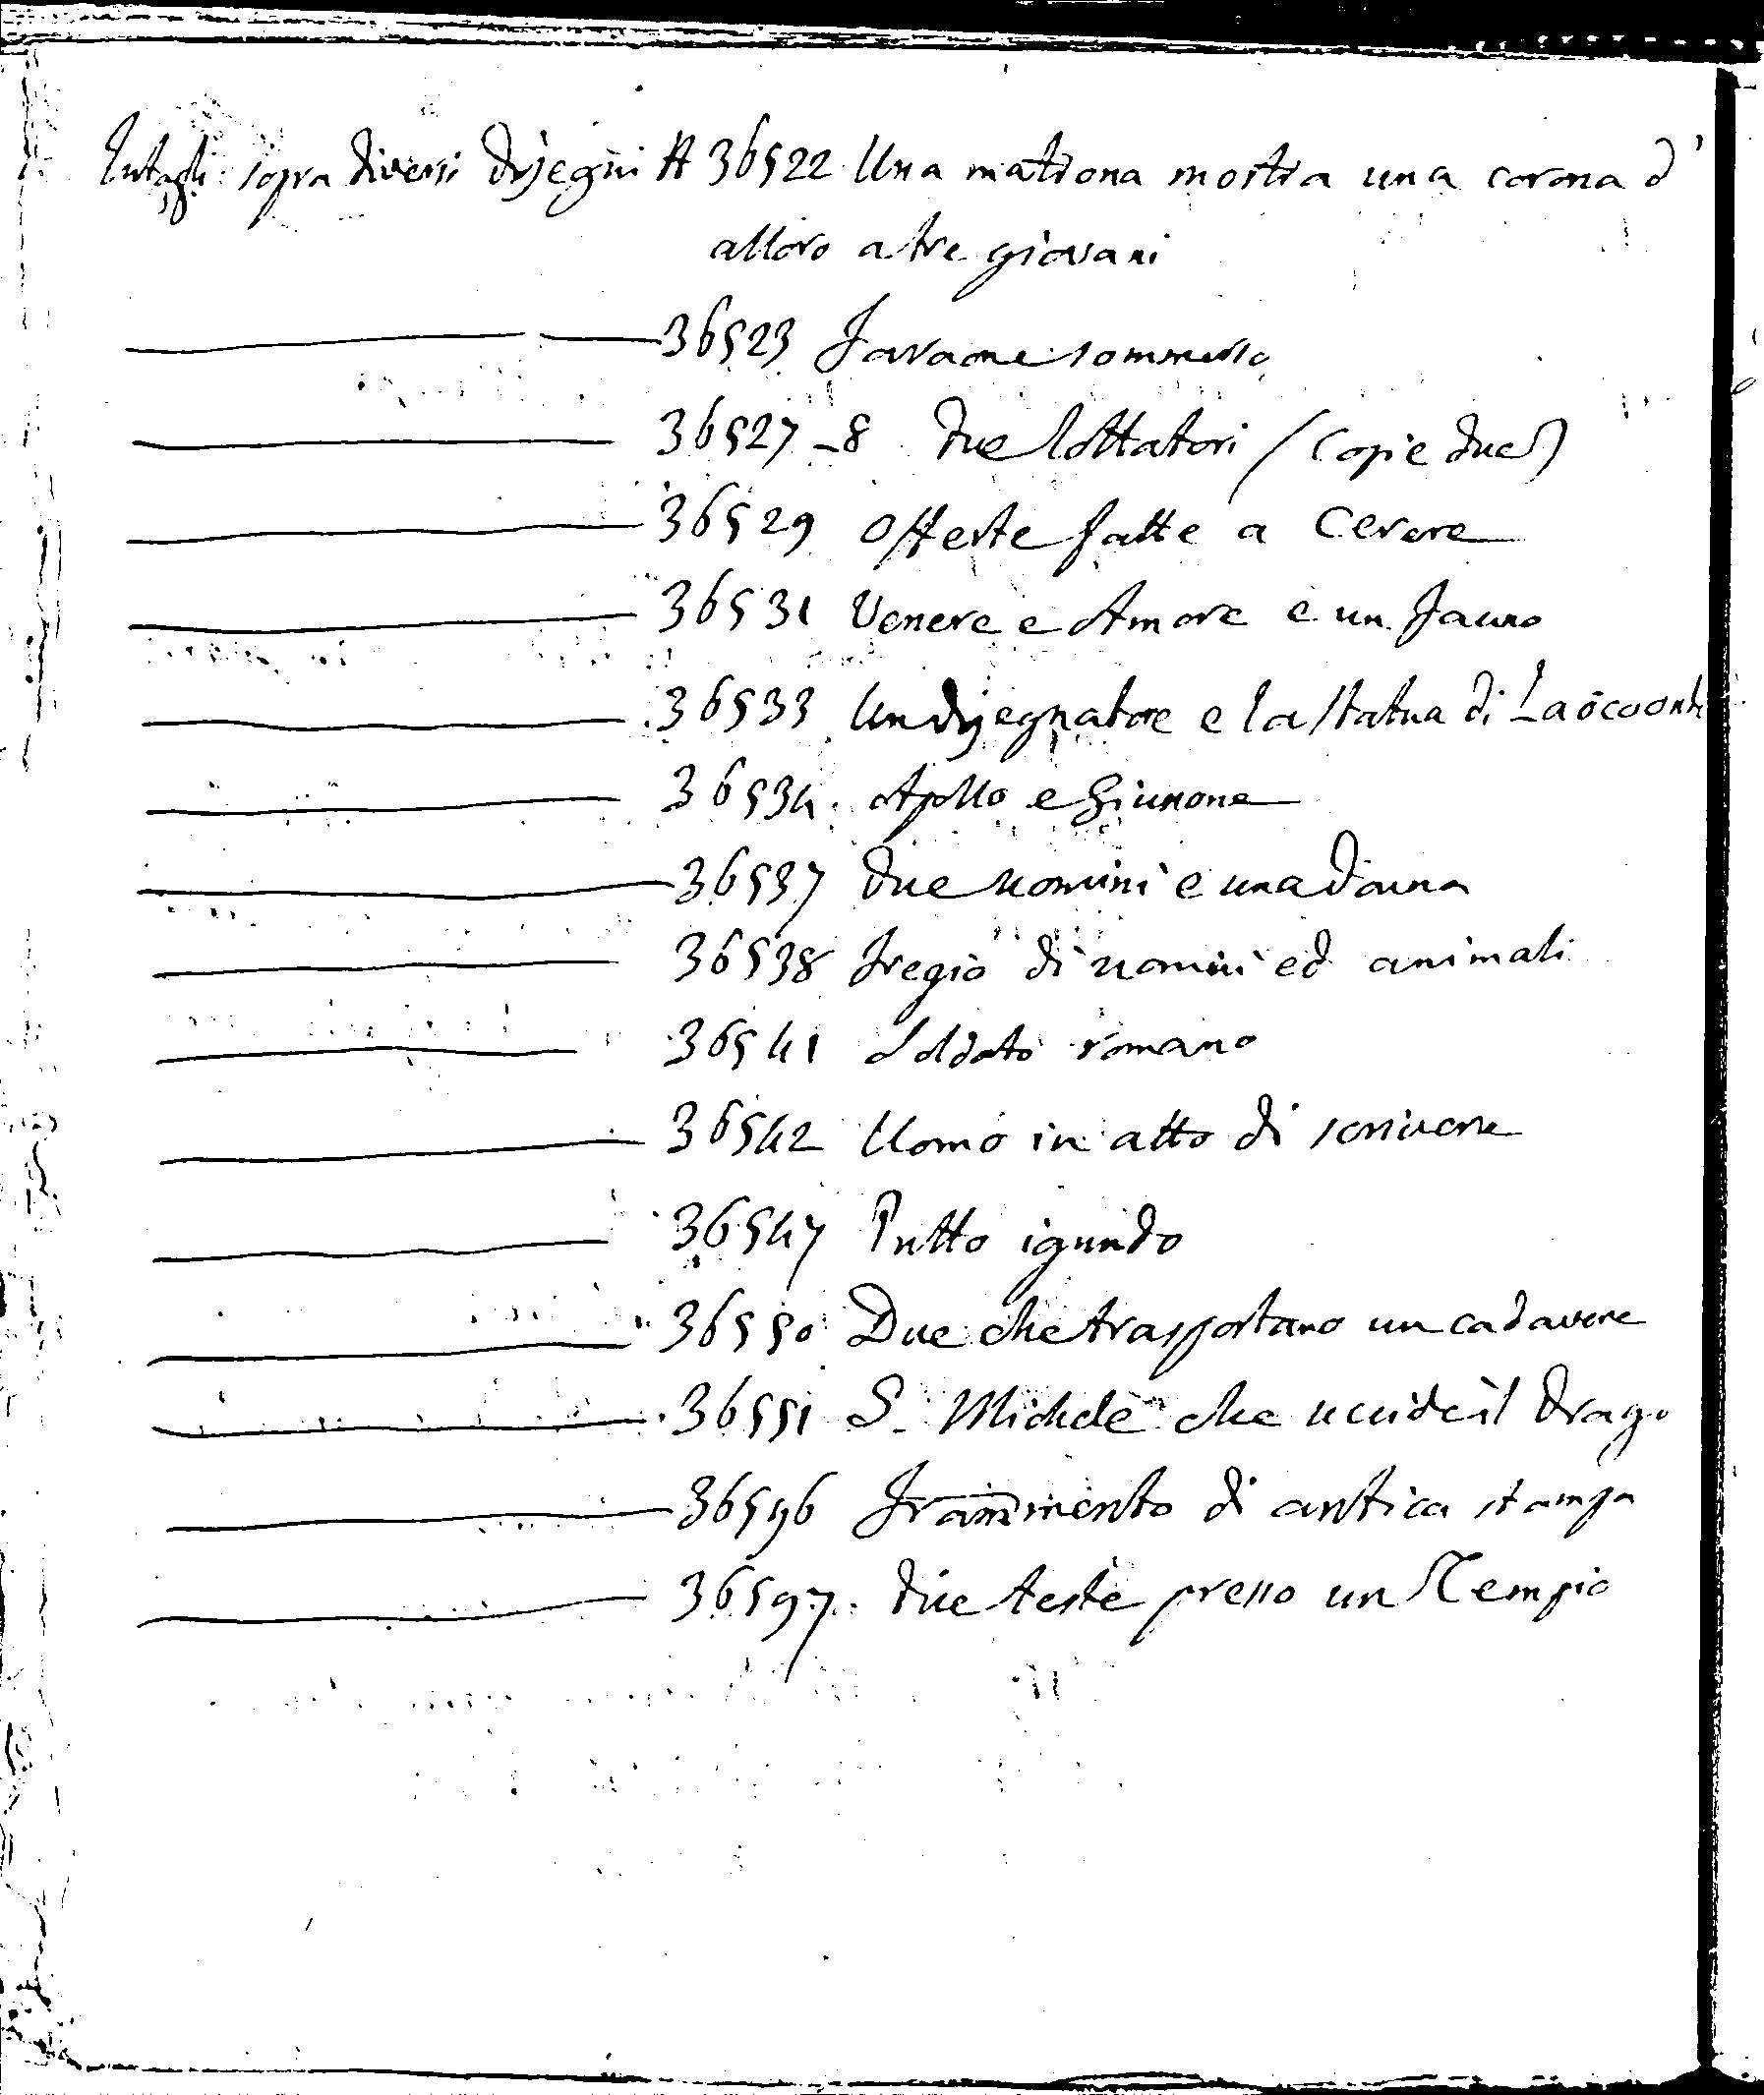 Intagli sopra diversi disegni A 36522 Una matrona mostra una corona d'
alloro a tre giovani
36523 Faraone sommerso
36527-8 due lottatori (Copie due)
36529 Offerte fatte a Cerere
36531 Venere e Amore e un Fauno
36533 Un disegnatore e la statua di Laocoonte
36534. Apollo e Giunone
36537 due uomini e una donna
36538 Fregio di uomini ed animali
36541 Soldato romano
36542 Uomo in atto di scrivere
36547 Putto ignudo
36550 Due che trasportano un cadavere
36551 S. Michele che uccide il Drago
36596 Frammento di antica stampa
36597. due teste presso un Tempio